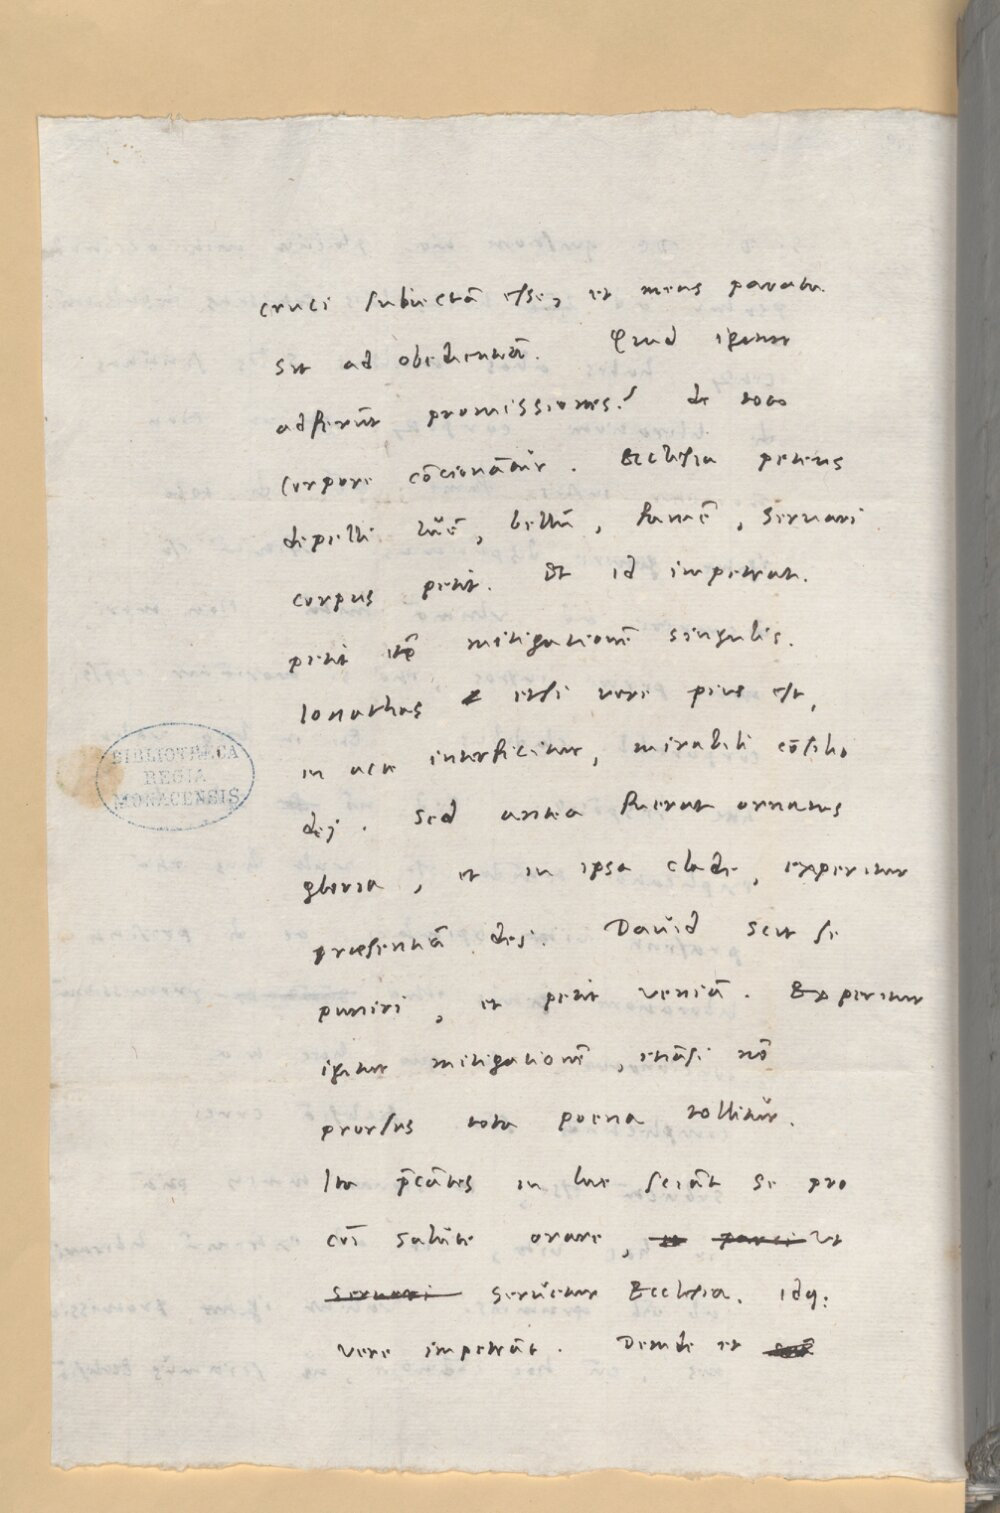 cruci subiectā esse, et mens parata
sit ad obedientiā. Quid igitur
adferūt promissiones? de toto
corpore cōcionātur. Ecclesia petens
depelli luē, bellū, famē, servari
corpus petit. Et id impetrat.
petit itē mitigationē singulis.
Ionathas etsi vere pius est,
in acie interficitur, mirabili cōsilio
dej. Sed antea fuerat ornatus
gloria, et in ipsa clade, experitur
præsentiā dej. Dauid scit se
puniri, et petit veniā. Experitur
igitur mitigationē, etiāsi nō
prorsus tota poena tollitur.
Ita p̄cātes in lue sciāt se pro
salute orare, et parci ut
servari seruetur Ecclesia. idq:
vere impetrāt. Deinde et
BIBLIOTHECA
REGIA
MONACENSIS